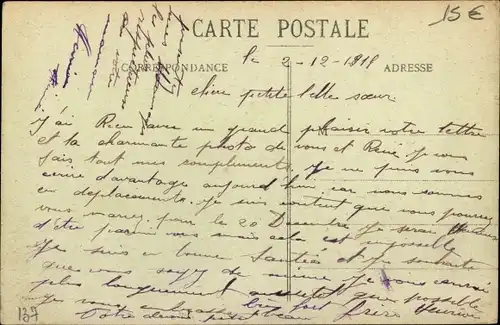 CARTE POSTALE
15€
le 2-12-1915
CORRESPONDANCE
ADRESSE
chère petite belle sœur
J'ai Reçu avec un grand plaisir votre lettre
et la charmante photo de vous et René je vous
fais tout mes compliments. Je ne puis vous
écrire d'avantage aujourd'hui car nous sommes
en deplacements. Je suis content que vous pourrez
vous marier pour le 20 Decembre je serai
d'être parmi vous mais cela est impossible
Je suis en bonne santée et je souhaite
que vous soyez de même je vous ecrirai
plus longuement aussitot que possible
Je vous embrasse bien fort
Votre beau Frère
137